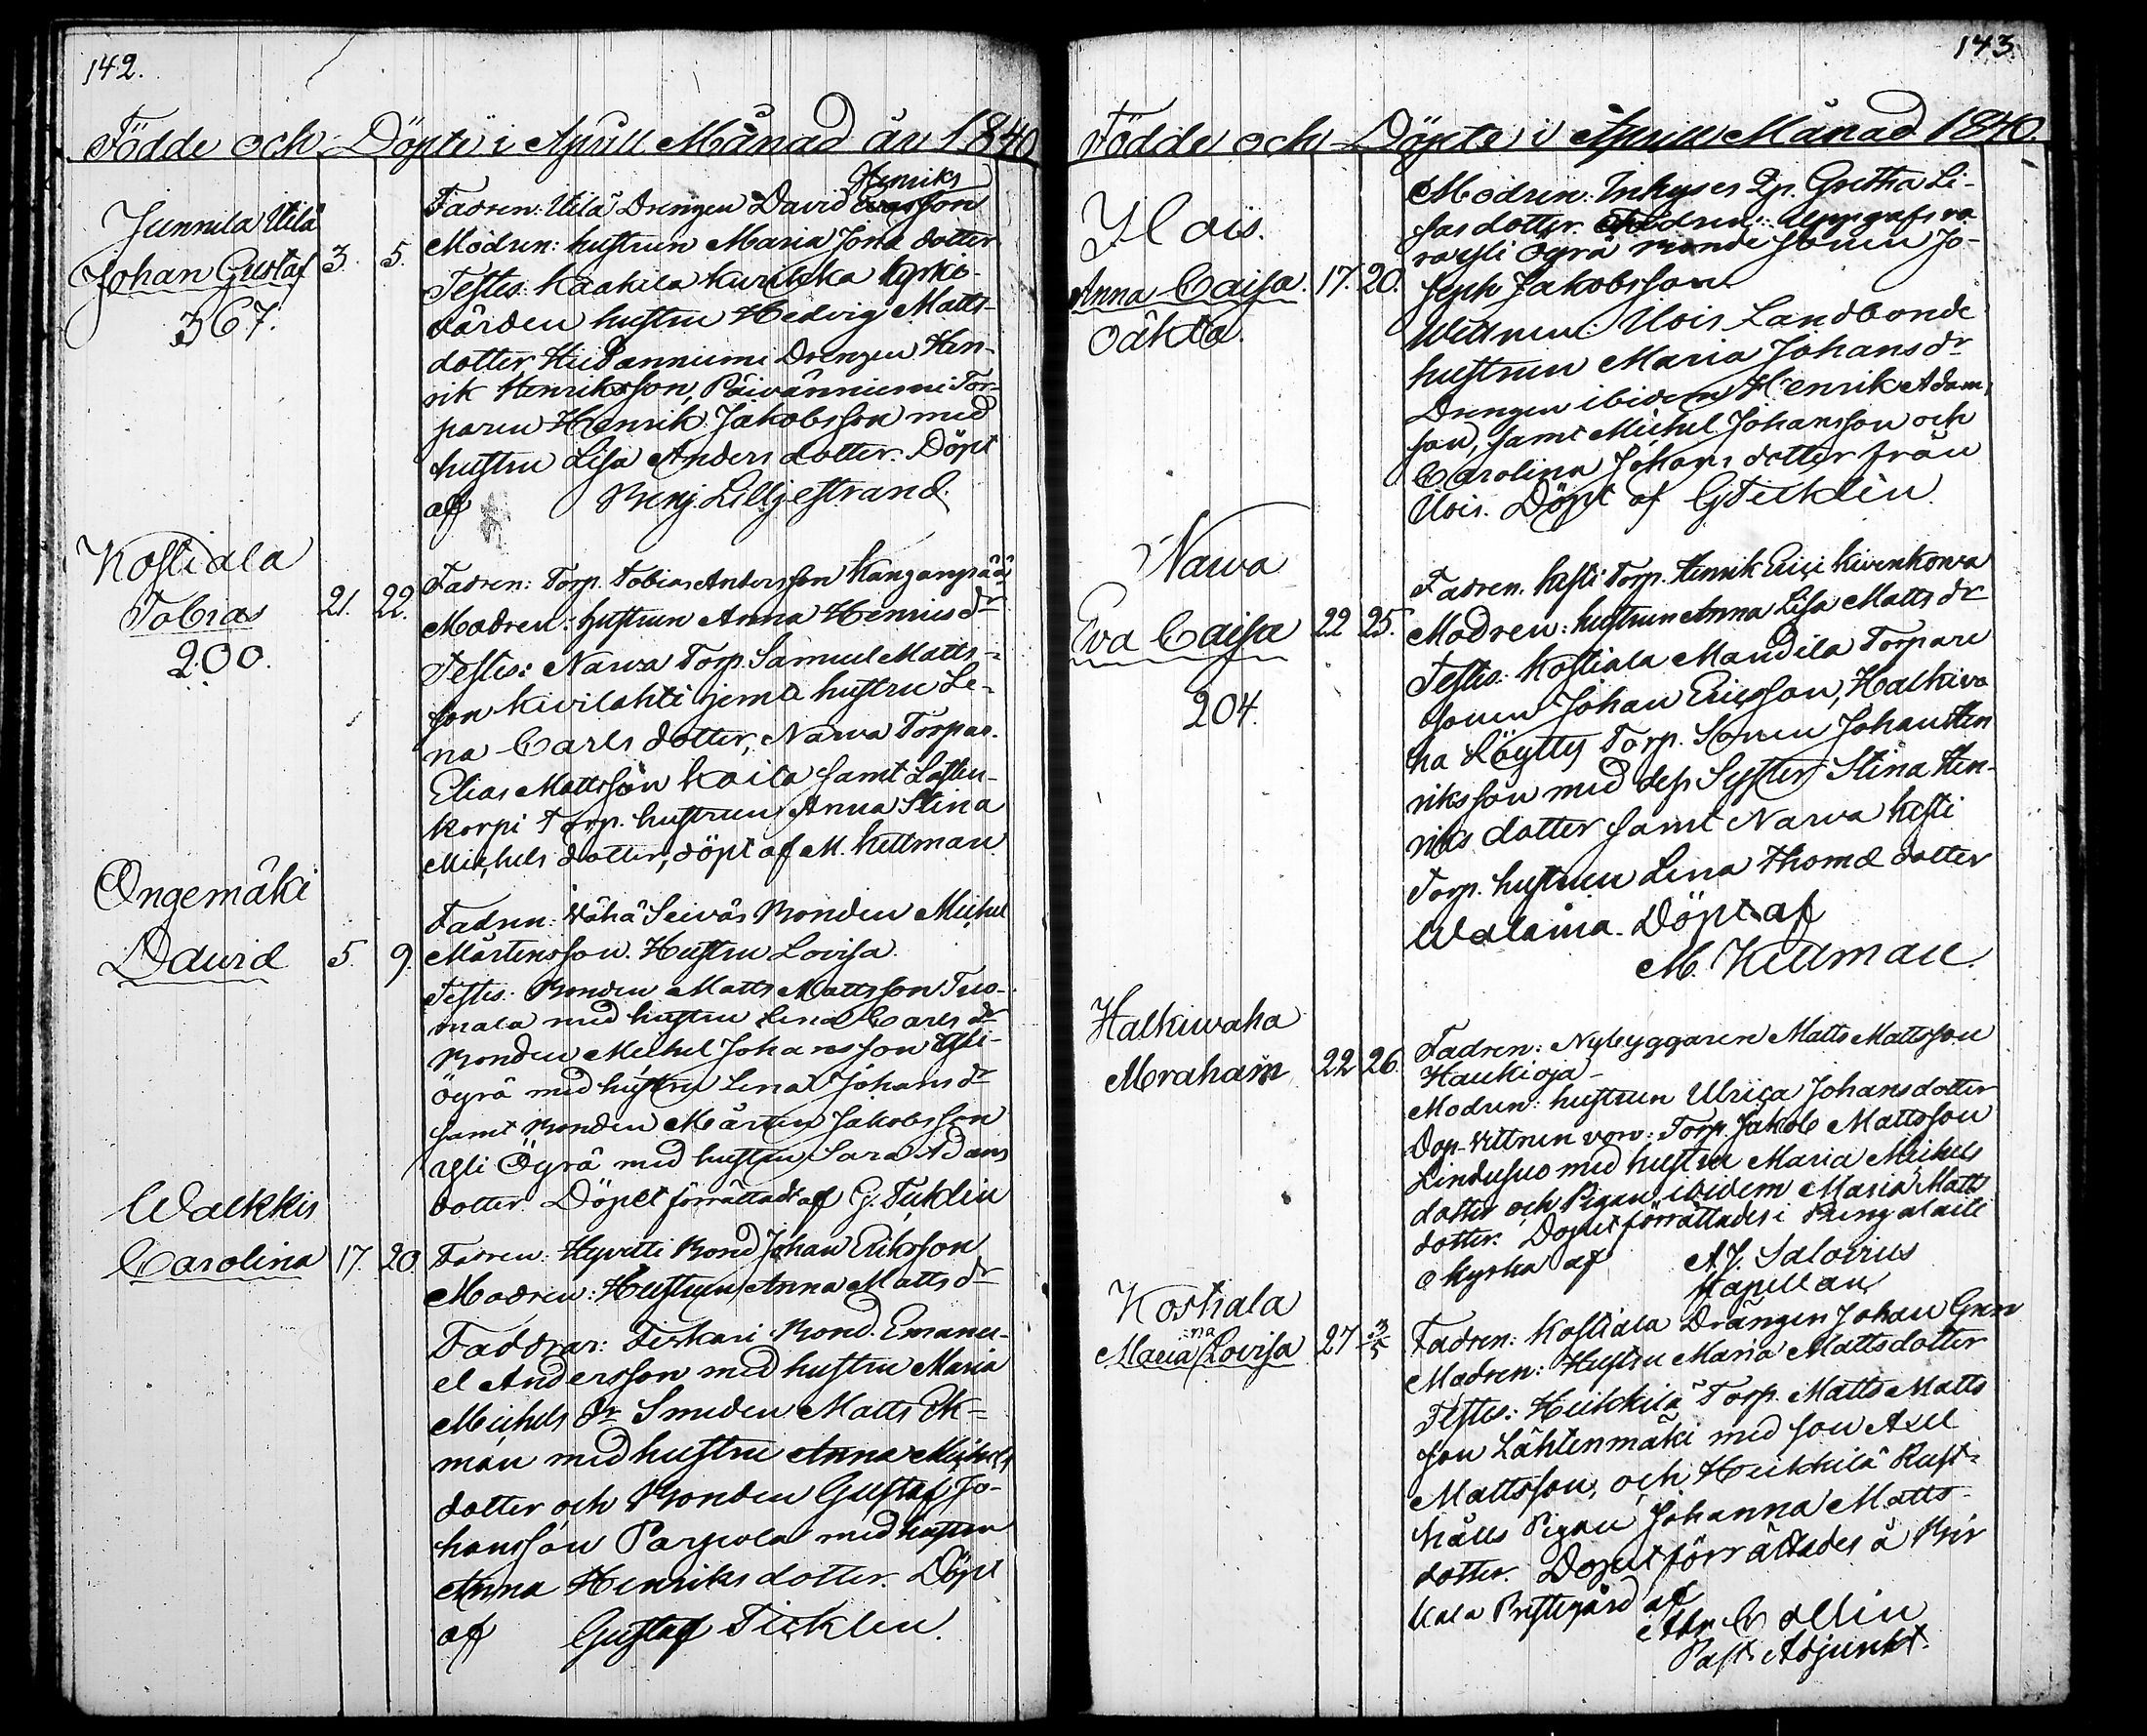 142.
Födde och Döpte i Aprill Månad år 1840
Junnila Uitä
Johan Gustaf 3. 5.
367.
Fadren: Uitä Drengen David Henriksson
Modren: hustrun Maria Jona dotter
Testes: Kaakila Kurikka kyrkio-
vården hustru Hedvig Matts-
dotter, Hiidanniemi Drengen Hen-
rik Henriksson, Päivänniemi Tor-
paren Henrik Jakobsson med
hustru Lisa Anders dotter. Döpt
af Benj. Lilljestrand.
Kostiala
Tobias 21. 22.
200.
Fadren: Torp. Tobias Andersson Kangaspää
Modren: hustrun Anna Henrics dr
Testes: Narva Torp. Samuel Matts-
son Kivilahti jemte hustru Le-
na Carls dotter, Narva Torpar.
Elias Mattsson Koila samt
korpi Torp. hustrun Anna Stina
Michels dotter, döpt af M. Kellman
Ongemäki
David 5. 9.
Fadren: Vähä Seiväs Bonden Michel
Mårtensson. Hustru Lovisa.
Testes: Bonden Matts Mattsson Tuo-
mala med hustru Lena Carls dr
Bonden Michel Johansson Yli-
Ögrä med hustru Lena Johans dr
samt Bonden Mårten Jakobsson
Yli Ögrä med hustru Sara Adams
dotter. Döpet förrättadt af G. Ticklén
Walkkis
Carolina 17. 20
Fadren: Hyritti Bond Johan Eriksson
Modren: Hustrun Anna Matts dr
Faddrar: Tiskari Bond. Emanu-
el Andersson med hustru Maria
Michels dr Smeden Matts Ek-
man med hustru Anna Michels
dotter och Bonden Gustaf Jo-
hansson Parjeola med hustru
Anna Henriks dotter. Döpt
af Gustaf Ticklen.
143.
Födde och Döpte i Aprill Månad 1840.
Ylois.
Anna Caisa. 17. 20.
oäkta.
Modren: Inhyses Qp. Gretha Li-
sas dotter. Fadren: Uppgafs va-
ra Yli Ögrä Bonde Sonen Jo-
seph Jakobsson.
Wittnen: Ulois Landbonde
hustrun Maria Johans dr
Drengen ibidem Henrik Adam
son, samt Michel Johansson och
Carolina Johans dotter från
Ulois. Döpt af G Ticklén
Narva
Eva Caisa 22 25.
204.
Fadren. Kesti Torp. Henrik Erici Kivenkorva
Modren: hustrun Anna Lisa Matts dr
Testes: Kostiala Mandila Torpare
sonen Johan Ericsson, Halkiva
ha Löyttys Torp. Sonen Johan Hen
riksson med dess Syster Stina Hen-
riks dotter samt Narva Kesti
Torp. hustrun Lena Thomæ dotter
Walania. Döpt af
M. Kellman.
Halkiwaha
Abraham 22 26.
Fadren: Nybyggaren Matts Mattsson
Haukioja
Modren: hustrun Ulrica Johansdotter
Dop-Vittnen vore: Torp. Jakob Mattsson
Lindusuo med hustru Maria Michels
dotter och Pigan ibidem Maria Matts
dotter. Dopet förrättades i Pungalaiti
Kyrka af A.J. Salovius
Kapellan
Kostiala
Maria Lovisa 27 3/5
Fadren: Kostiala Drängen Johan Gren
Modren: Hustru Maria Mattsdotter
Testes: Heikkilä Torp. Matts Matts
son Lähtenmäki med son Axel
Mattsson, och Heikkilä Rust-
hålls Pigan Johanna Matts-
dotter. Dopet förrättades å Bir
kala Prestegård af
Abr. Collin
Past. Adjunkt.